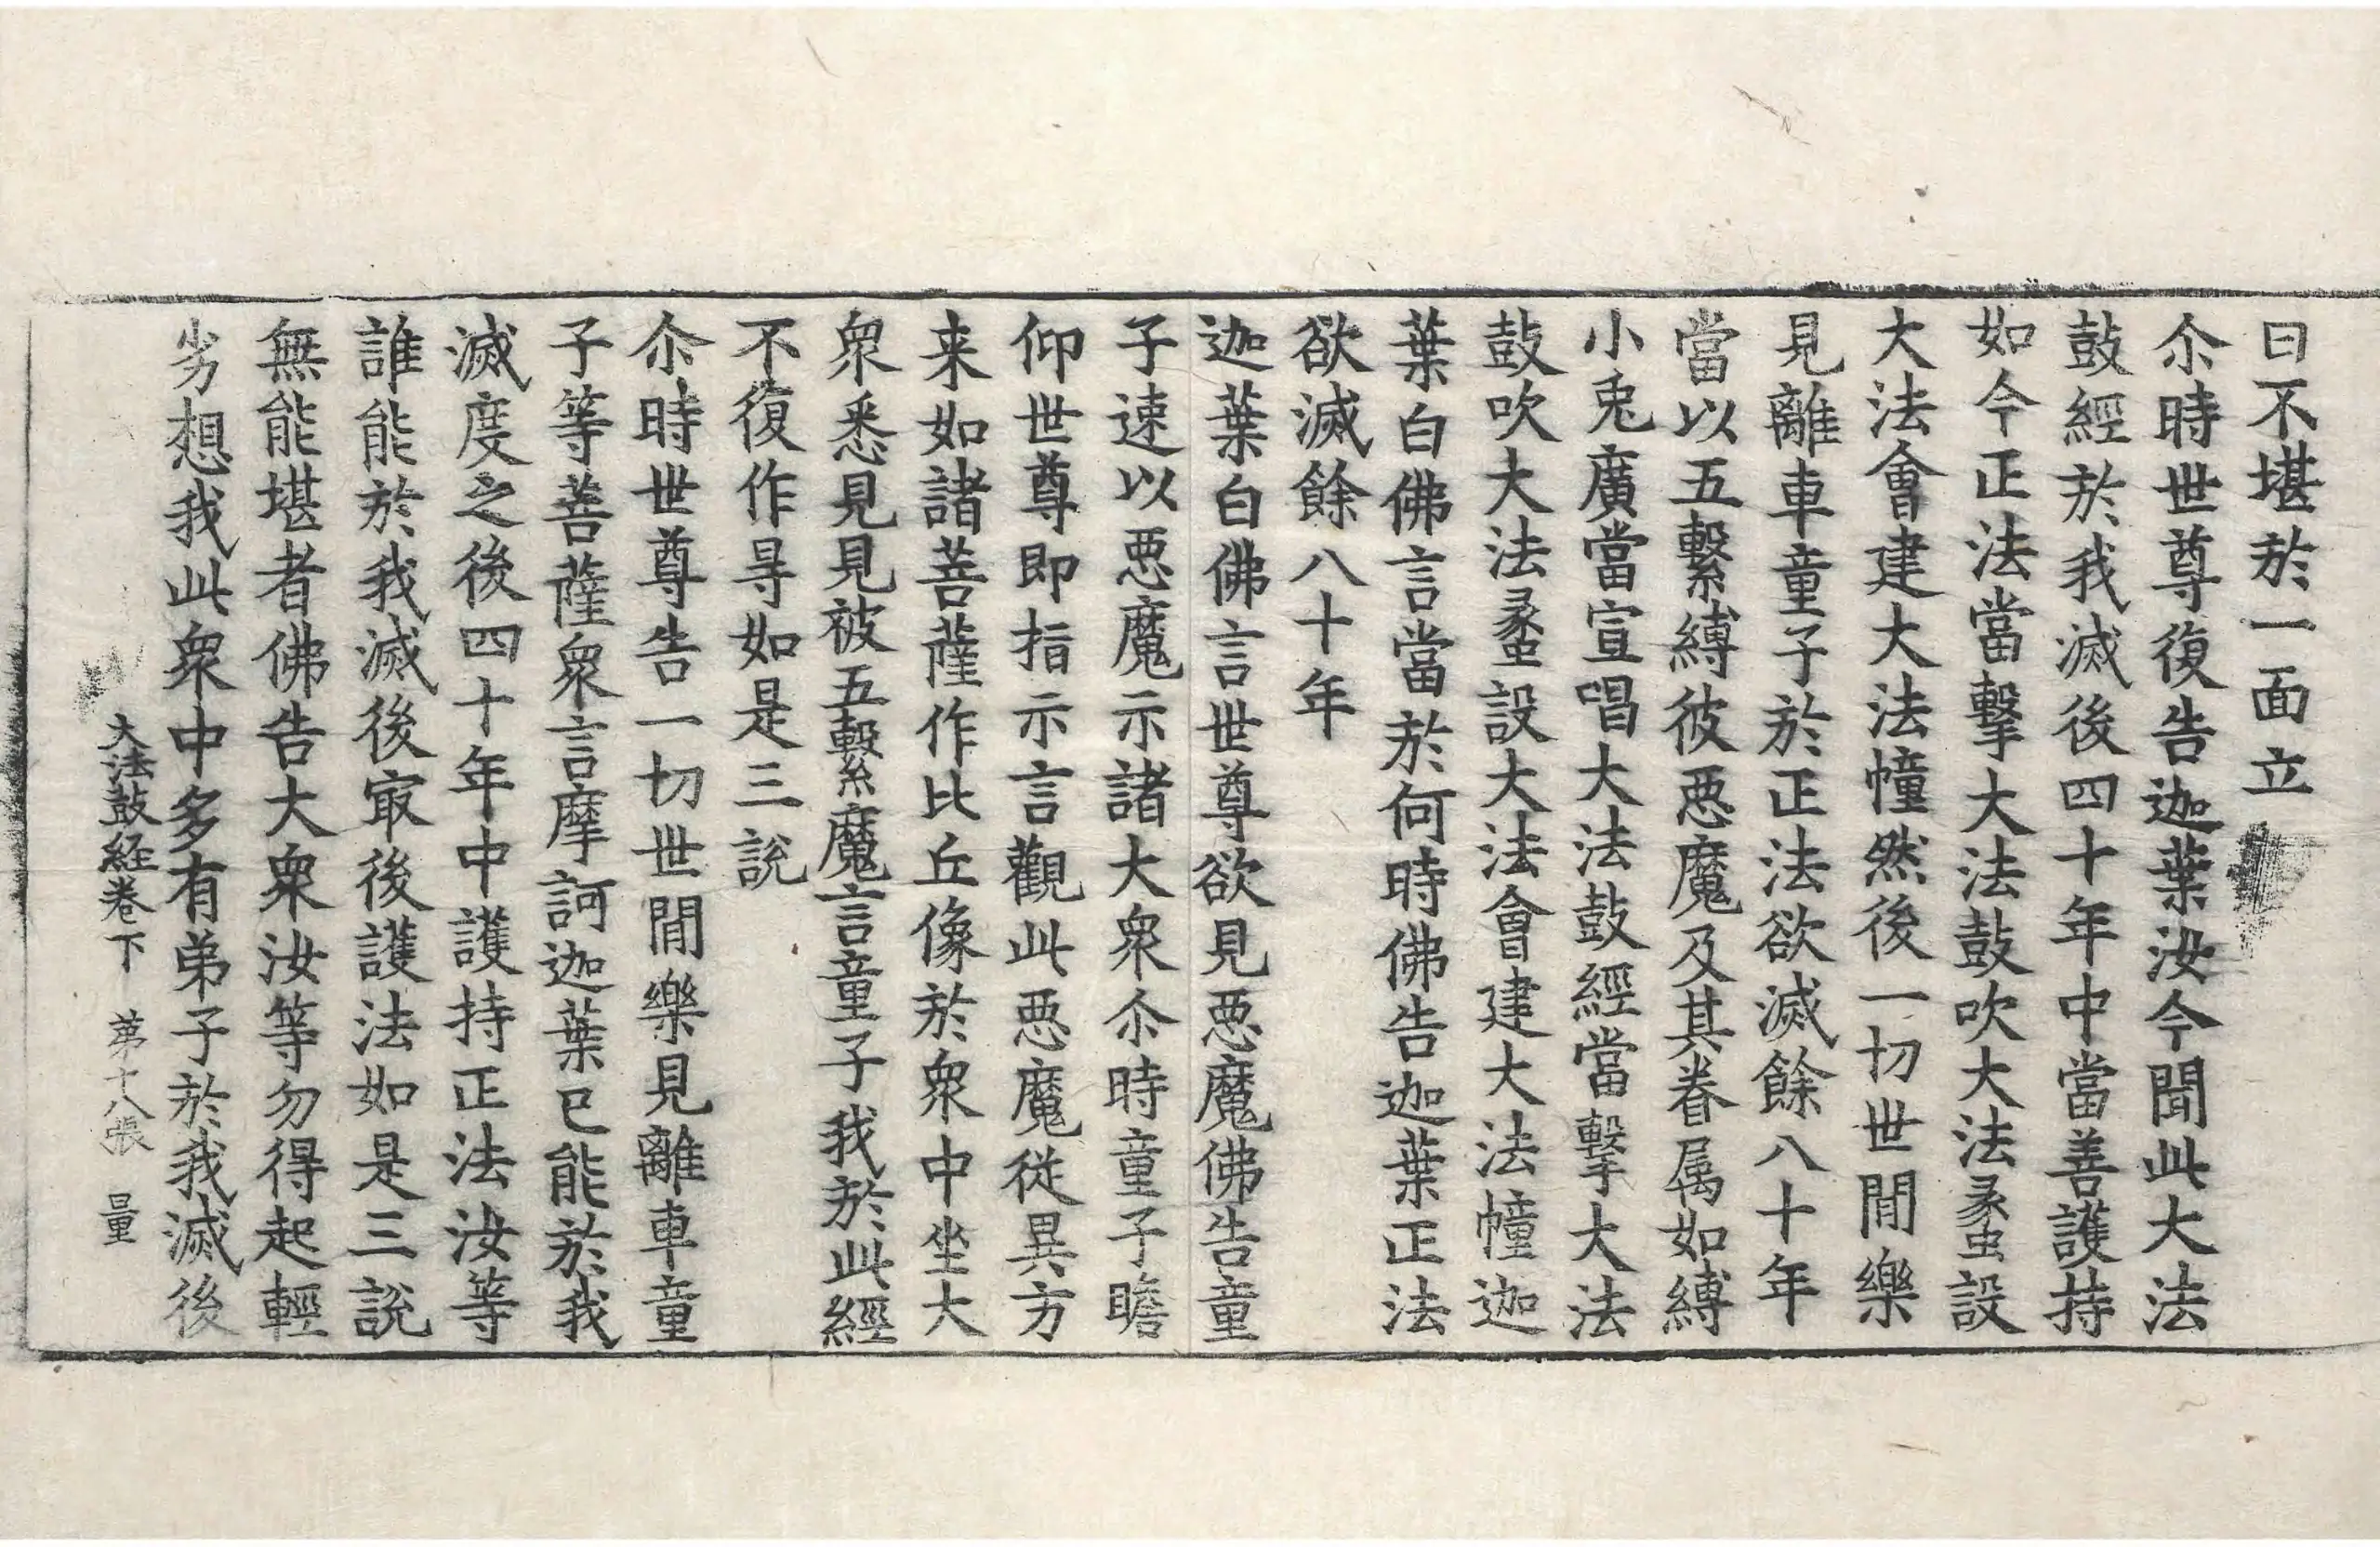 曰不堪於一面立
尒時世尊復告迦葉汝今聞此大法
鼓經於我滅後四十年中當善護持
如今正法當擊大法鼓吹大法䗍設
大法會建大法幢然後一切世閒樂
見離車童子於正法欲滅餘八十年
當以五繫縛彼惡魔及其眷属如縛
小兎廣當宣唱大法鼓經當擊大法
鼓吹大法䗍設大法會建大法幢迦
葉白佛言當於何時佛告迦葉正法
欲滅餘八十年
迦葉白佛言世尊欲見惡魔佛告童
子速以惡魔示諸大衆尒時童子瞻
仰世尊即指示言觀此惡魔從異方
来如諸菩薩作比丘像於衆中坐大
衆悉見見被五繫魔言童子我於此經
不復作㝵如是三說
尒時世尊告一切世閒樂見離車童
子等菩薩衆言摩訶迦葉已能於我
滅度之後四十年中護持正法汝等
誰能於我滅後㝡後護法如是三說
無能堪者佛告大衆汝等勿得起輕
劣想我此衆中多有弟子於我滅後
大法鼓経卷下 第十八張 量